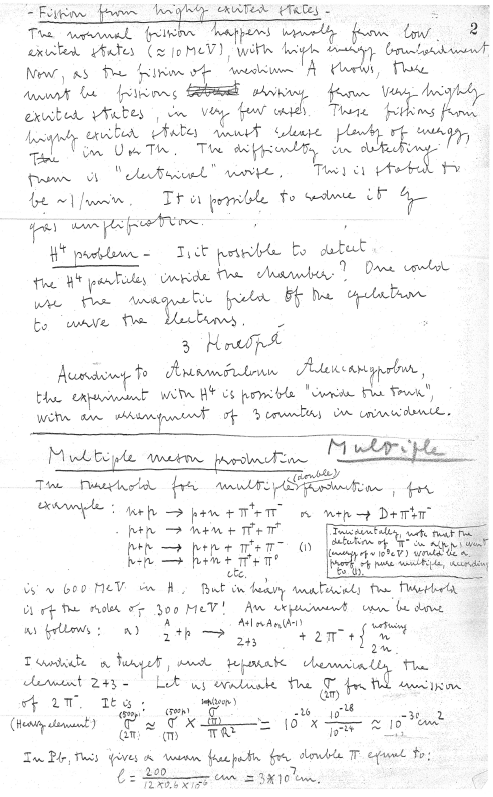 - Fission from highly excited states -
2
The normal fission happens usually from low
excited states (≈ 10 MeV), with high energy bombardment
Now, as the fission of medium A shows, there
must be fissions arising from very highly
excited states, in very few cases. These fissions from
highly excited states must release plenty of energy,
in U or Th. The difficulty in detecting
them is "electrical" noise. This is stated to
be ~ 1/min. It is possible to reduce it by
gas amplification.
H⁴ problem - Is it possible to detect
the H⁴ particles inside the chamber? One could
use the magnetic field of the cyclotron
to curve the electrons.
3 Ноября
According to Анатолий Александрович,
the experiment with H⁴ is possible "inside the tank",
with an arrangment of 3 counters in coincidence.
Multiple meson production Multiple
The threshold for multiple (double) production, for
example: n+p → p+n + π⁺+π⁻ or n+p → D+π⁺+π⁻
p+p → n+n + π⁺+π⁺
p+p → p+p + π⁺+π⁻ (1)
p+p → p+p + π⁺+π⁰
etc.
Incidentally, note that the
detection of π⁻ in a p,p event
(energy of ~ 10⁹ eV) would be a
proof of pure multiple, according
to (1).
is ~ 600 MeV in H. But in heavy materials the threshold
is of the order of 300 MeV! An experiment can be done
as follows: a) A Z + p → A+1 or A or (A-1) Z+3 + 2π⁻ + { nothing n 2n
I irradiate a target, and separate chemically the
element Z+3 - Let us evaluate the σ (2π) for the emission
of 2π⁻. It is:
(Heavy element) σ (500p) (2π) ≈ σ (500p) (π) × σ (200p) (π) / πR² = 10⁻²⁶ × 10⁻²⁸ / 10⁻²⁴ ≈ 10⁻³⁰ cm²
In Pb, this gives a mean free path for double π equal to:
l = 200 / 12×0.6×10⁻⁶ cm = 3×10⁷ cm.